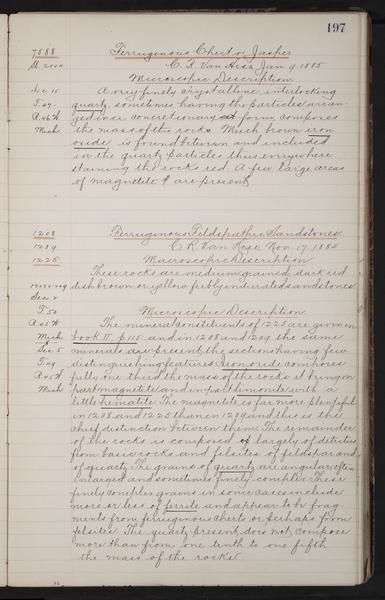 197
7588 Ferruginous Chert or Jasper.
Sl. 2000 C. R. Van Hise, Jan 9, 1885
Microscopic Description.
Sec. 15 A very finely crystalline, interlocking
T.47. quartz, sometimes having the particles arran-
R.46W ged in a concretionary form, composes
Mich. the mass of the rock. Much brown iron
oxide is found between and included
in the quartz particles thus everywhere
staining the rock red. A few large areas
of magnetite are present.
1208 Ferruginous Feldspathic Sandstones.
1209 C. R. Van Hise, Nov. 17, 1884
1225 Macroscopic Description
These rocks are medium grained, dark red
dish brown or yellow feebly indurated sandstones.
Sec. 2
T.50 Microscopic Description
R.45W. The mineral constituents of 1225 are given in
Mich book II, p 115 and in 1208 and 1209 the same
Sec. 5 minerals are present, the sections having few
T.49 distinguishing features. Iron oxide composes
R.45W fully one third the mass of the rocks it being in
Mich part magnetite and in part limonite with a
little hematite. The magnetite is far more plentiful
in 1208 and 1225 than in 1209 and this is the
chief distinction between them. The remainder
of the rocks is composed of largely of detritus
from basic rocks and felsites of feldspar and
of quartz. The grains of quartz are angular, often
enlarged and sometimes finely complex. These
finely complex grains in some cases include
more or less of ferrite and appear to be frag
ments from ferruginous cherts or perhaps from
felsites. The quartz present does not compose
more than from one tenth to one fifth
the mass of the rocks.